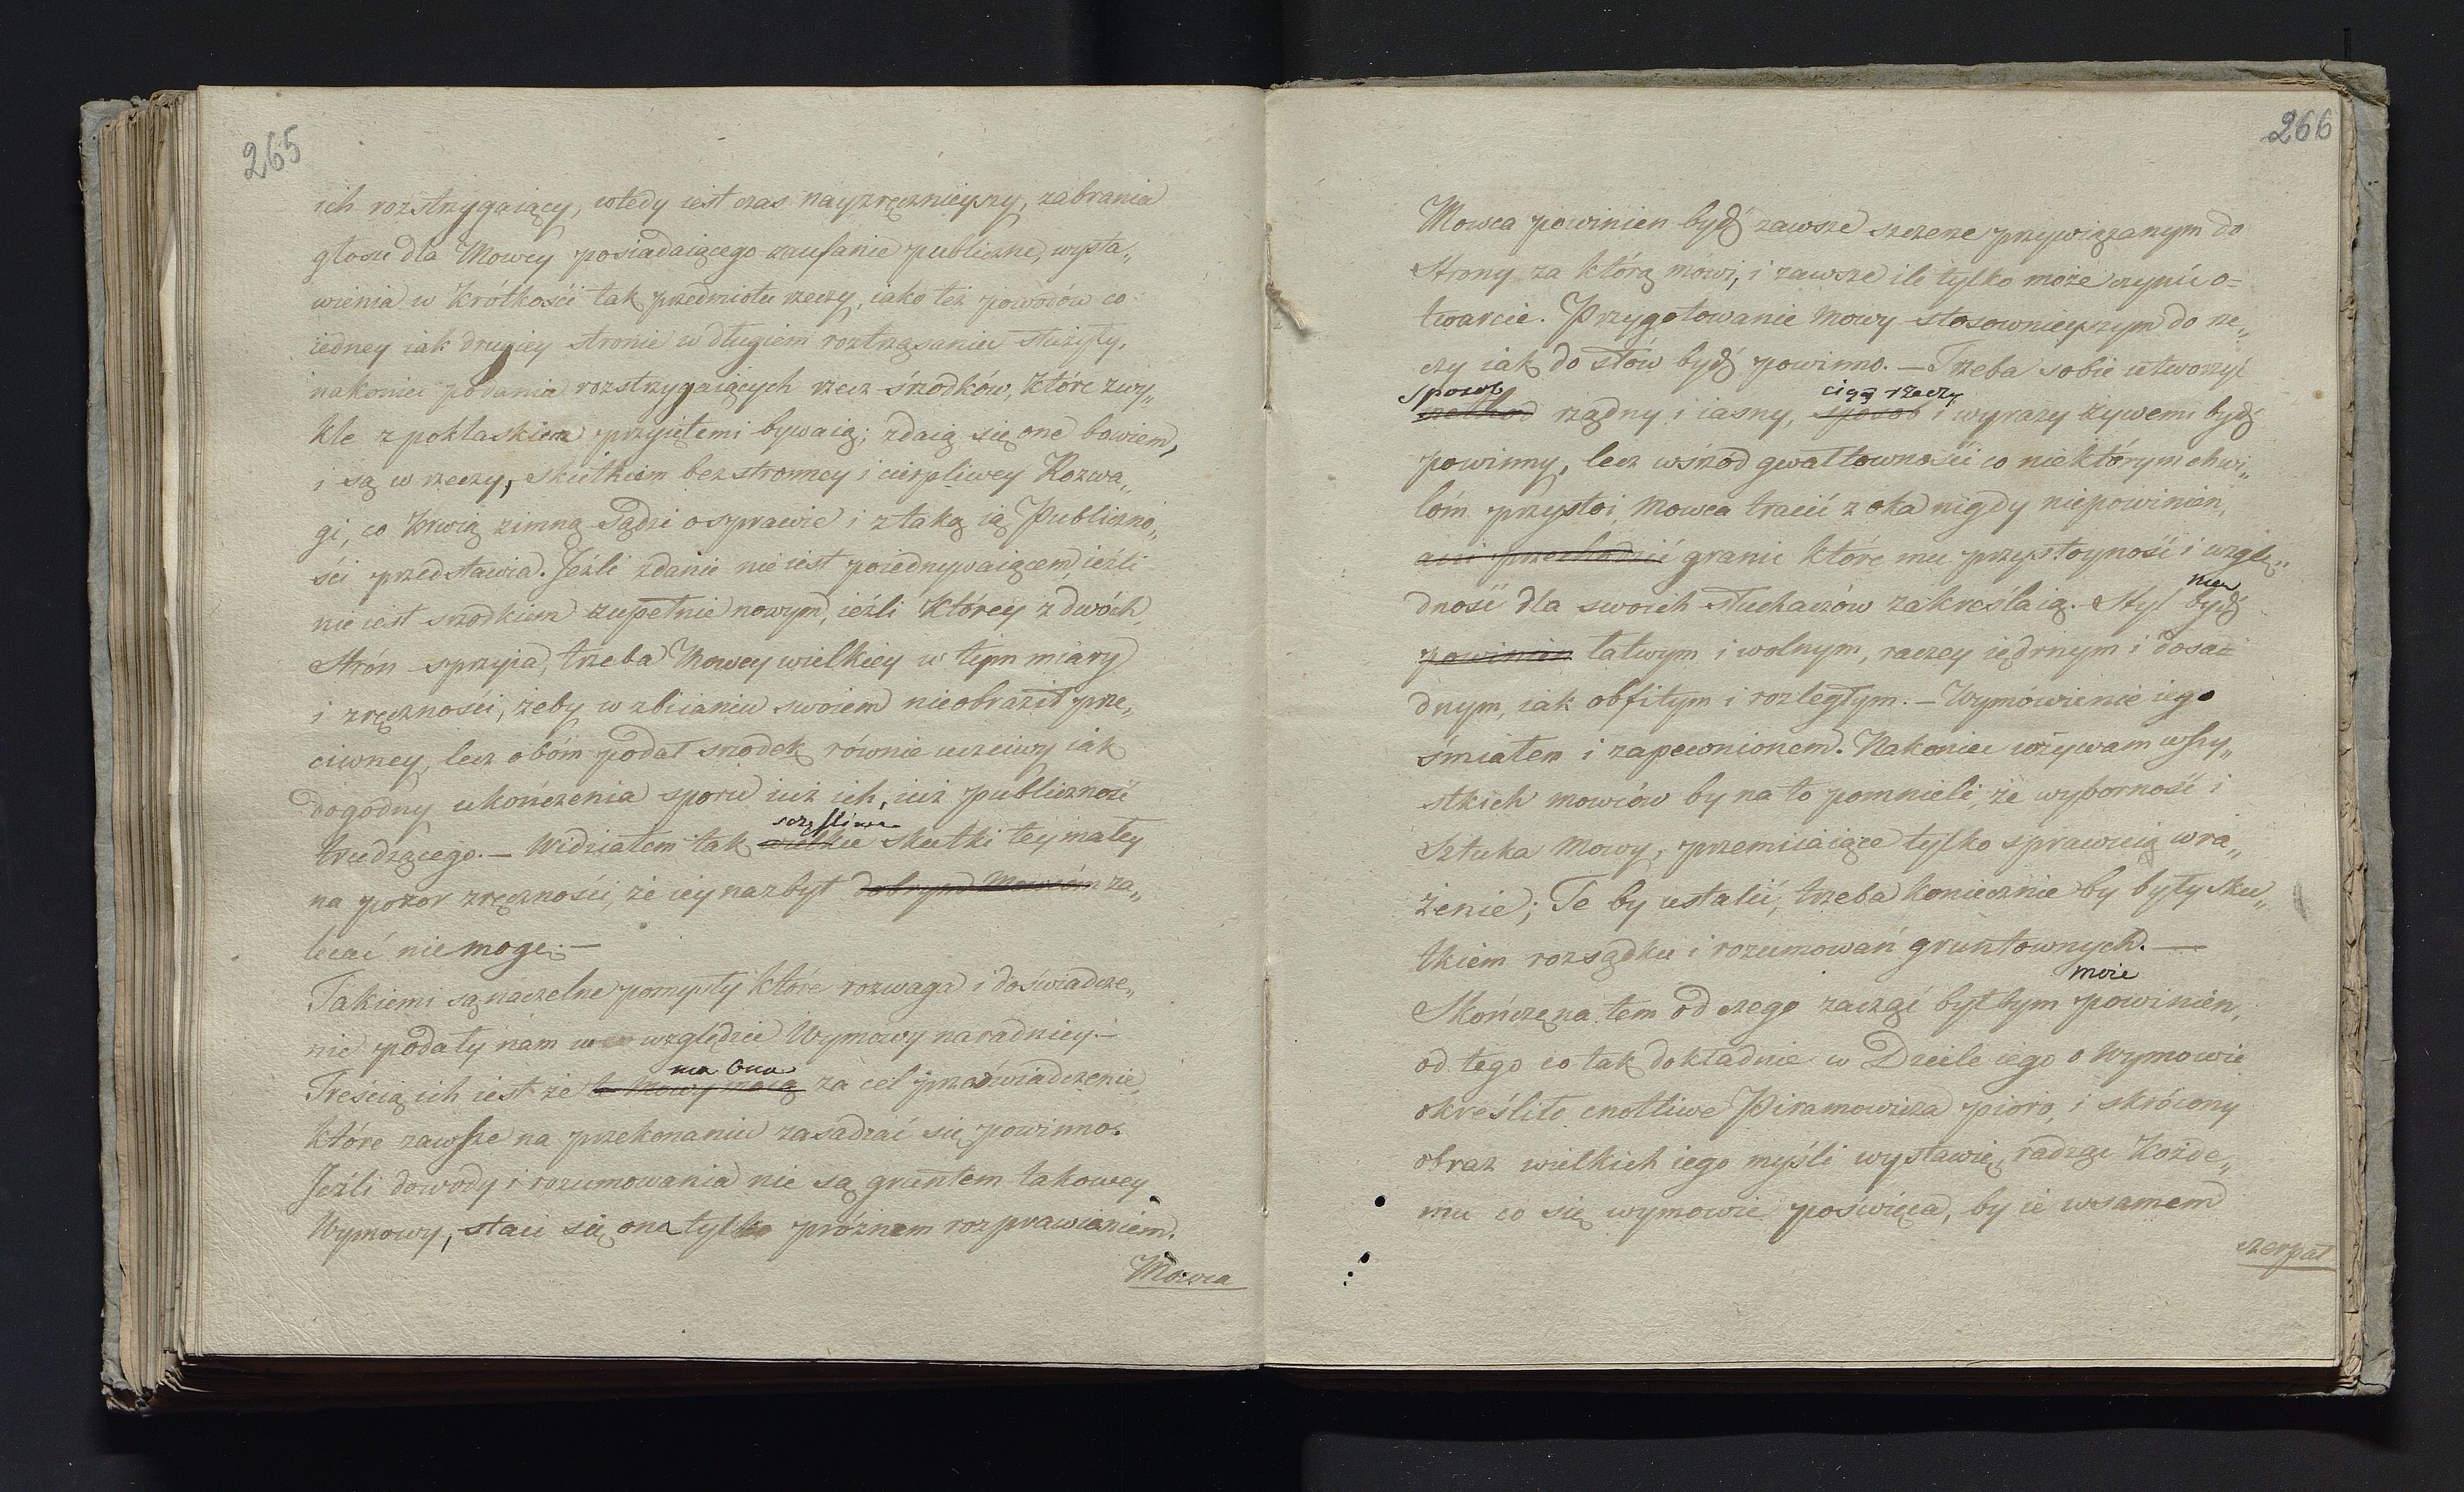 265
ich rozstrzygaiący, wtedy iest czas nayzręcznieyszy, zabrania
głosu dla Mowcy posiadaiącego zaufanie publiczne, wysta„
wienia w krótkości tak przedmiotu rzeczy, iako też powodów co
iedney iak drugiey stronie w długiem roztrząsaniu służyły,
nakoniec podania rozstrzygaiących rzecz śrzodków, które zwy„
kle z poklaskiem przyiętemi bywaią; zdaią się one bowiem,
i są w rzeczy, skutkiem bezstronney i cierpliwey Rozwa„
gi, co krwią zimną sądzi o sprawie i z taką ią Publiczno„
ści przedstawia. Jeźli zdanie nie iest poiednywaiącem, ieźli
nie iest srzodkiem zupełnie nowym, ieźli którey z dwóch
strón sprzyia, trzeba Mowcy wielkiey w tym miary
i zręczności, żeby w zbiianiu swoiem nieobraził prze„
ciwney, lecz obóm podał srzodek równie uczciwy iak
dogodny ukończenia sporu iuż ich, iuż publiczność
trudzącego. — Widziałem tak wielkie skutki tey małey
szczęśliwe
na pozor zręczności, że iey nazbyt dobrym Mowcóm za„
lecać nie mogę. —
Takiemi są naczelne pomysły które rozwaga i doświadcze„
nie podały nam w względzie Wymowy naradniey. —
ma ona
Treścią ich iest że te mowy maią za cel przeświadczenie,
które zawsze na przekonaniu zasadzać się powinno.
Jeźli dowody i rozumowania nie są gruntem takowey
Wymowy, staie się ona tylko próżnem rozprawianiem.
Mowca
266
Mowca powinien bydź zawsze szczerze przywiązanym do
strony za którą mówi, i zawsze ile tylko może czynić o=
twarcie. Przygotowanie Mowy stosownieyszym do rze„
czy iak do słów bydź powinno. — Trzeba sobie utworzyć
sposob ciąg rzeczy
method rządny i iasny, sposob i wyrazy żywemi bydź
powinny, lecz wśród gwałtowności co niektórym chwi„
lóm przystoi, Mowca tracić z oka nigdy niepowinien,
ani przechodzić granic które mu przystoyność i wzglę„
dność dla swoich słuchaczów zakreślaią. Styl bydź
ma
powinien łatwym i wolnym, raczey iędrnym i dosa=
dnym, iak obfitym i rozległym. — Wymówienie iego
śmiałem i zapewnionem. Nakoniec wzywam wszy„
stkich mowców by na to pomnieli, że wyborność i
sztuka Mowy, przemiiaiące tylko sprawuią wra„
żenie; Te by ustalić, trzeba koniecznie by były sku„
tkiem rozsądku i rozumowań gruntownych. —
może
Skończę na tem od czego zacząć byłbym powinien,
od tego co tak dokładnie w Dziele iego o Wymowie
określiło cnotliwe Piramowicza pioro, i skrócony
obraz wielkich iego myśli wystawię, radząc każde„
mu co się wymowie poświęca, by ie w samem
czerpał